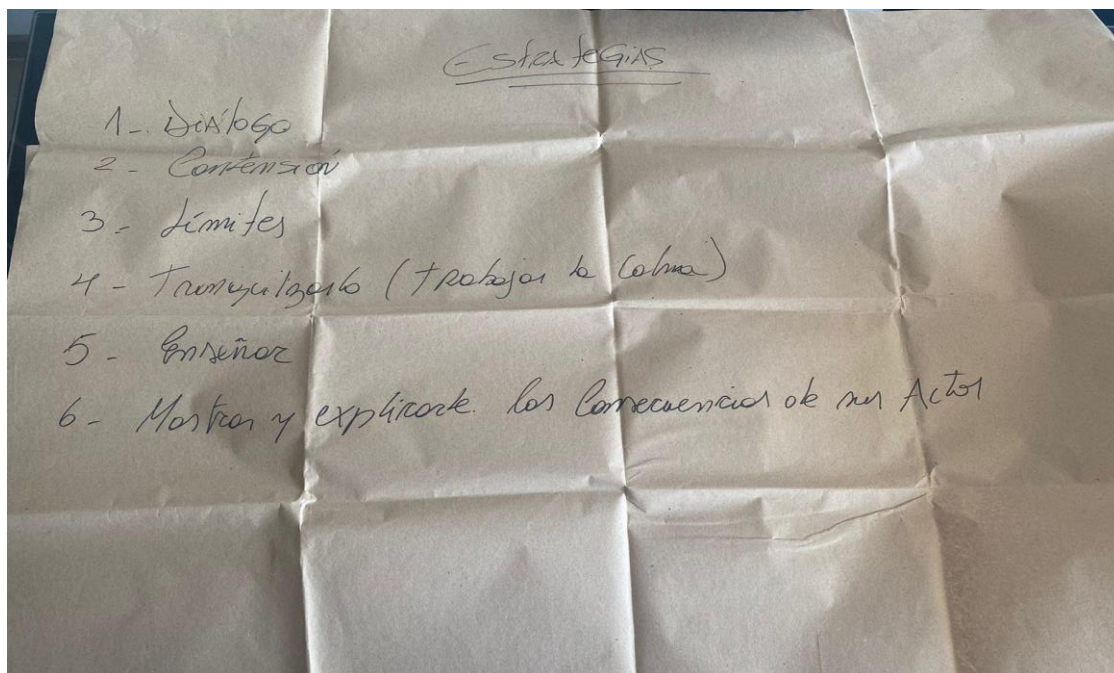 Estrategias
1-. Diálogo
2 - Contensión
3 - Límites
4 - Tranquilizarlo (trabajar la Calma)
5 - Enseñar
6 - Mostrar y explicarle. las Consecuencias de sus Actos